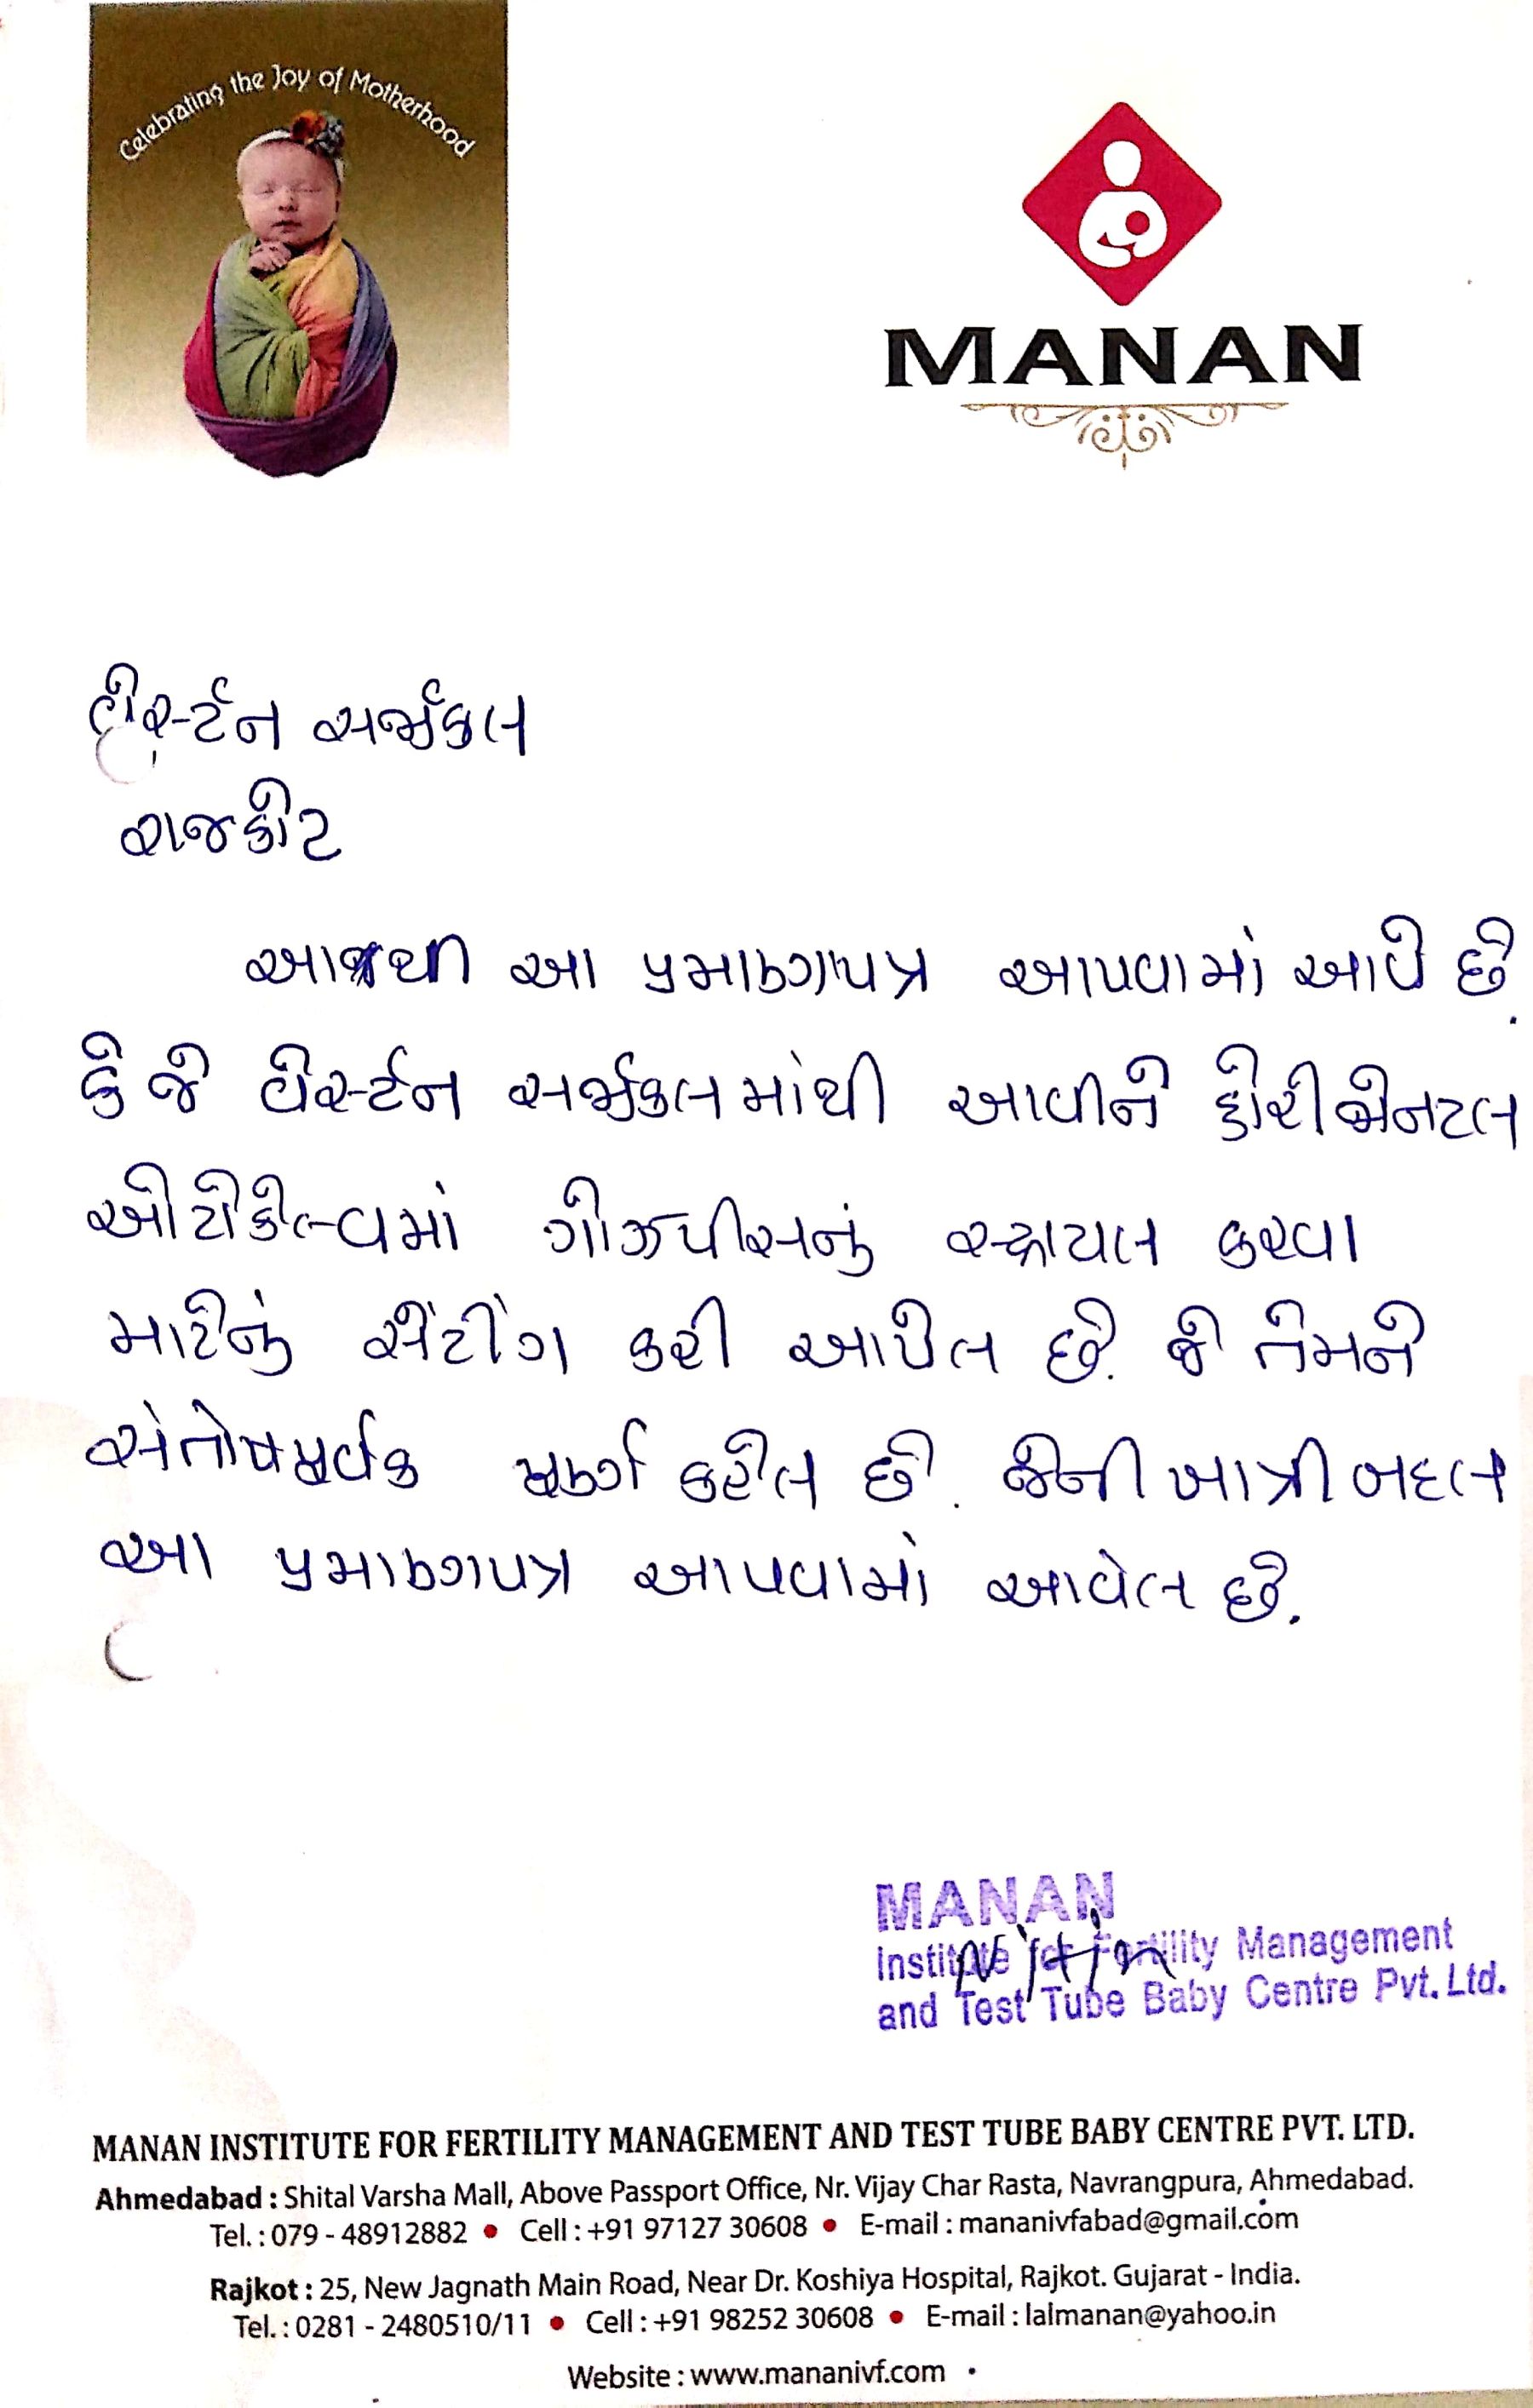 Celebrating the Joy of Motherhood
MANAN
વેસ્ટર્ન સર્જીકલ
રાજકોટ
આજથી આ પ્રમાણપત્ર આપવામાં આવે છે.
કે જે વેસ્ટર્ન સર્જીકલમાંથી આવીને હોરીઝોનટલ
ઓટોકેલ્વમાં ગોઝપીસનું સ્ટ્રાયલ કરવા
માટેનું સેંટીંગ કરી આપેલ છે. જે તેમને
સંતોષપૂર્વક પૂર્ણ કરેલ છે. જેની ખાત્રી બદલ
આ પ્રમાણપત્ર આપવામાં આવેલ છે.
MANAN
Institute for Fertility Management
and Test Tube Baby Centre Pvt. Ltd.
Nitin
MANAN INSTITUTE FOR FERTILITY MANAGEMENT AND TEST TUBE BABY CENTRE PVT. LTD.
Ahmedabad : Shital Varsha Mall, Above Passport Office, Nr. Vijay Char Rasta, Navrangpura, Ahmedabad.
Tel. : 079 - 48912882 • Cell : +91 97127 30608 • E-mail : mananivfabad@gmail.com
Rajkot : 25, New Jagnath Main Road, Near Dr. Koshiya Hospital, Rajkot. Gujarat - India.
Tel. : 0281 - 2480510/11 • Cell : +91 98252 30608 • E-mail : lalmanan@yahoo.in
Website : www.mananivf.com